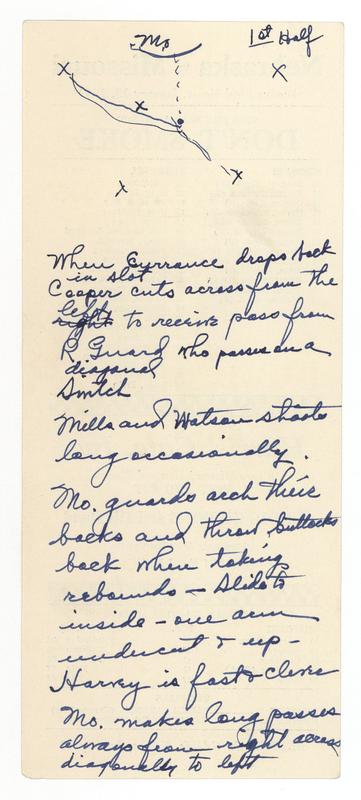 Mo
1st Half
X
X
X
X
X
When Currance drops back
in slot
Cooper cuts across from the
left
right to receive pass from
R. Guard who passes on a
diagonal
Switch
Mills and Watson shoots
long occasionally.
Mo. guards arch their
backs and throw buttocks
back when taking
rebounds – slide to
inside – one arm
undercut & up –
Harvey is fast & clever
Mo. makes long passes
always from right across
diagonally to left